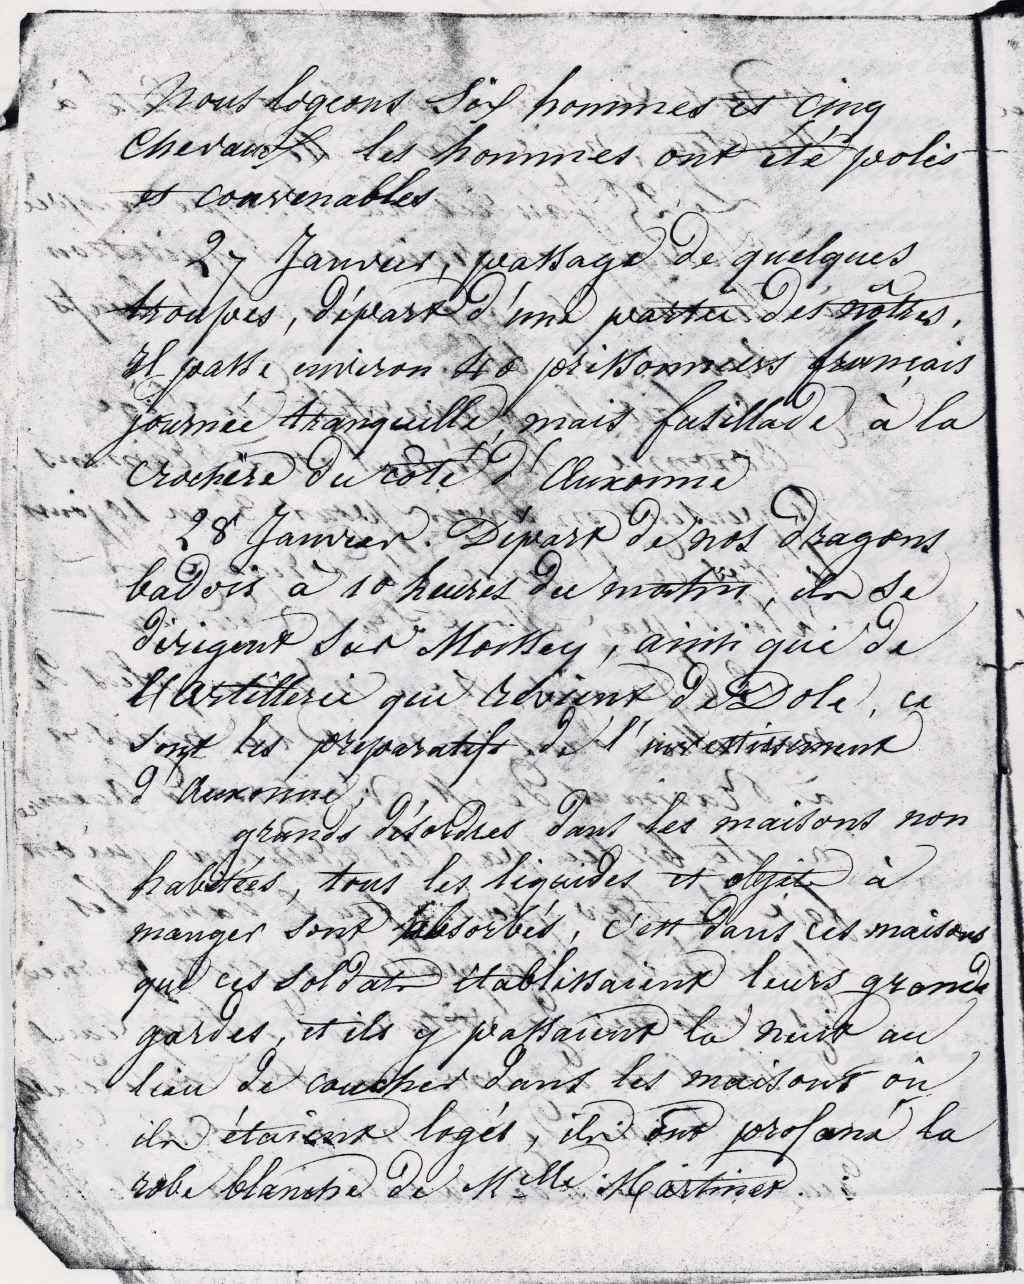 Nous logeons Six hommes et cinq
chevaux les hommes ont été polis
et convenables
27 Janvier, passage de quelques
troupes, départ d'une partie des nôtres,
il passe environ 40 prisonniers français
journée tranquille, mais fusillade à la
crochère du côté d'Auxonne
28 Janvier. Départ de nos dragons
badois à 10 heures du matin, ils se
dirigent sur Moissey, ainsi que de
l'artillerie qui revient de Dole, ce
sont les préparatifs de l'investissement
d'Auxonne,
grands désordres dans les maisons non
habitées, tous les liquides et objets à
manger sont absorbés, c'est dans ces maisons
que ces soldats établissaient leurs grands
gardes, et ils y passaient la nuit au
lieu de coucher dans les maisons où
ils étaient logés, ils ont profané la
robe blanche de Mlle Martinet.